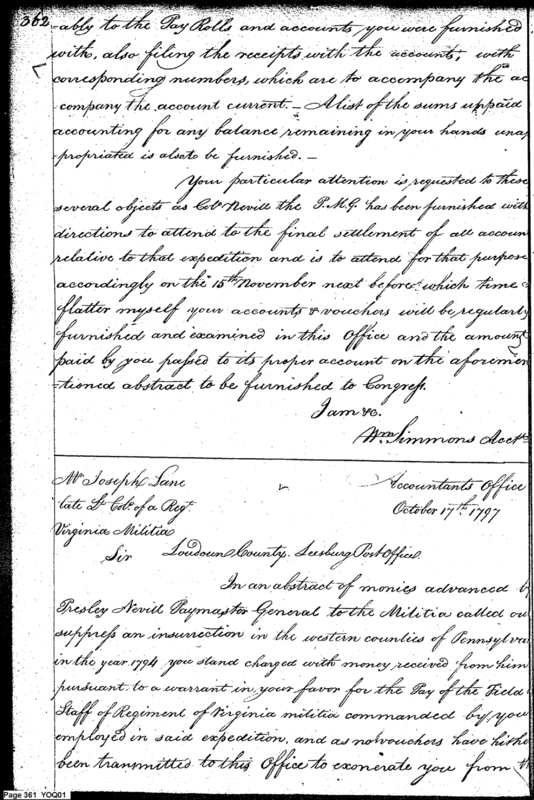 362
-ably to the Pay Rolls and accounts you were furnished
with, also filing the receipts with the accounts, with
corresponding numbers, which are to accompany the ac
company the account current. — A list of the sums unpaid
accounting for any balance remaining in your hands unap
-propriated is also to be furnished. —
Your particular attention is requested to these
several objects as Colo. Nevill the P.M.G. has been furnished with
directions to attend to the final settlement of all accoun
relative to that expedition and is to attend for that purpose
accordingly on the 15th November next before which time I
flatter myself your accounts & vouchers will be regularly
furnished and examined in this Office and the amount
paid by you passed to its proper account on the aforemen
-tioned abstract to be furnished to Congress.
I am &c.
Wm Simmons Acct.
Mr. Joseph Lane
late Lt. Colo. of a Regt.
Virginia Militia
Accountants Office
October 17th. 1797
Sir Loudoun County. Leesburg Post Office.
In an abstract of monies advanced b
Presley Nevill Paymaster General to the Militia called ou
suppress an insurrection in the western counties of Pennsylva
in the year 1794 you stand charged with money received from him
pursuant to a warrant in your favor for the Pay of the Field
Staff of Regiment of Virginia militia commanded by you
employed in said expedition, and as no vouchers have hithe
been transmitted to this Office to exonerate you from th
Page 361 YOQ01